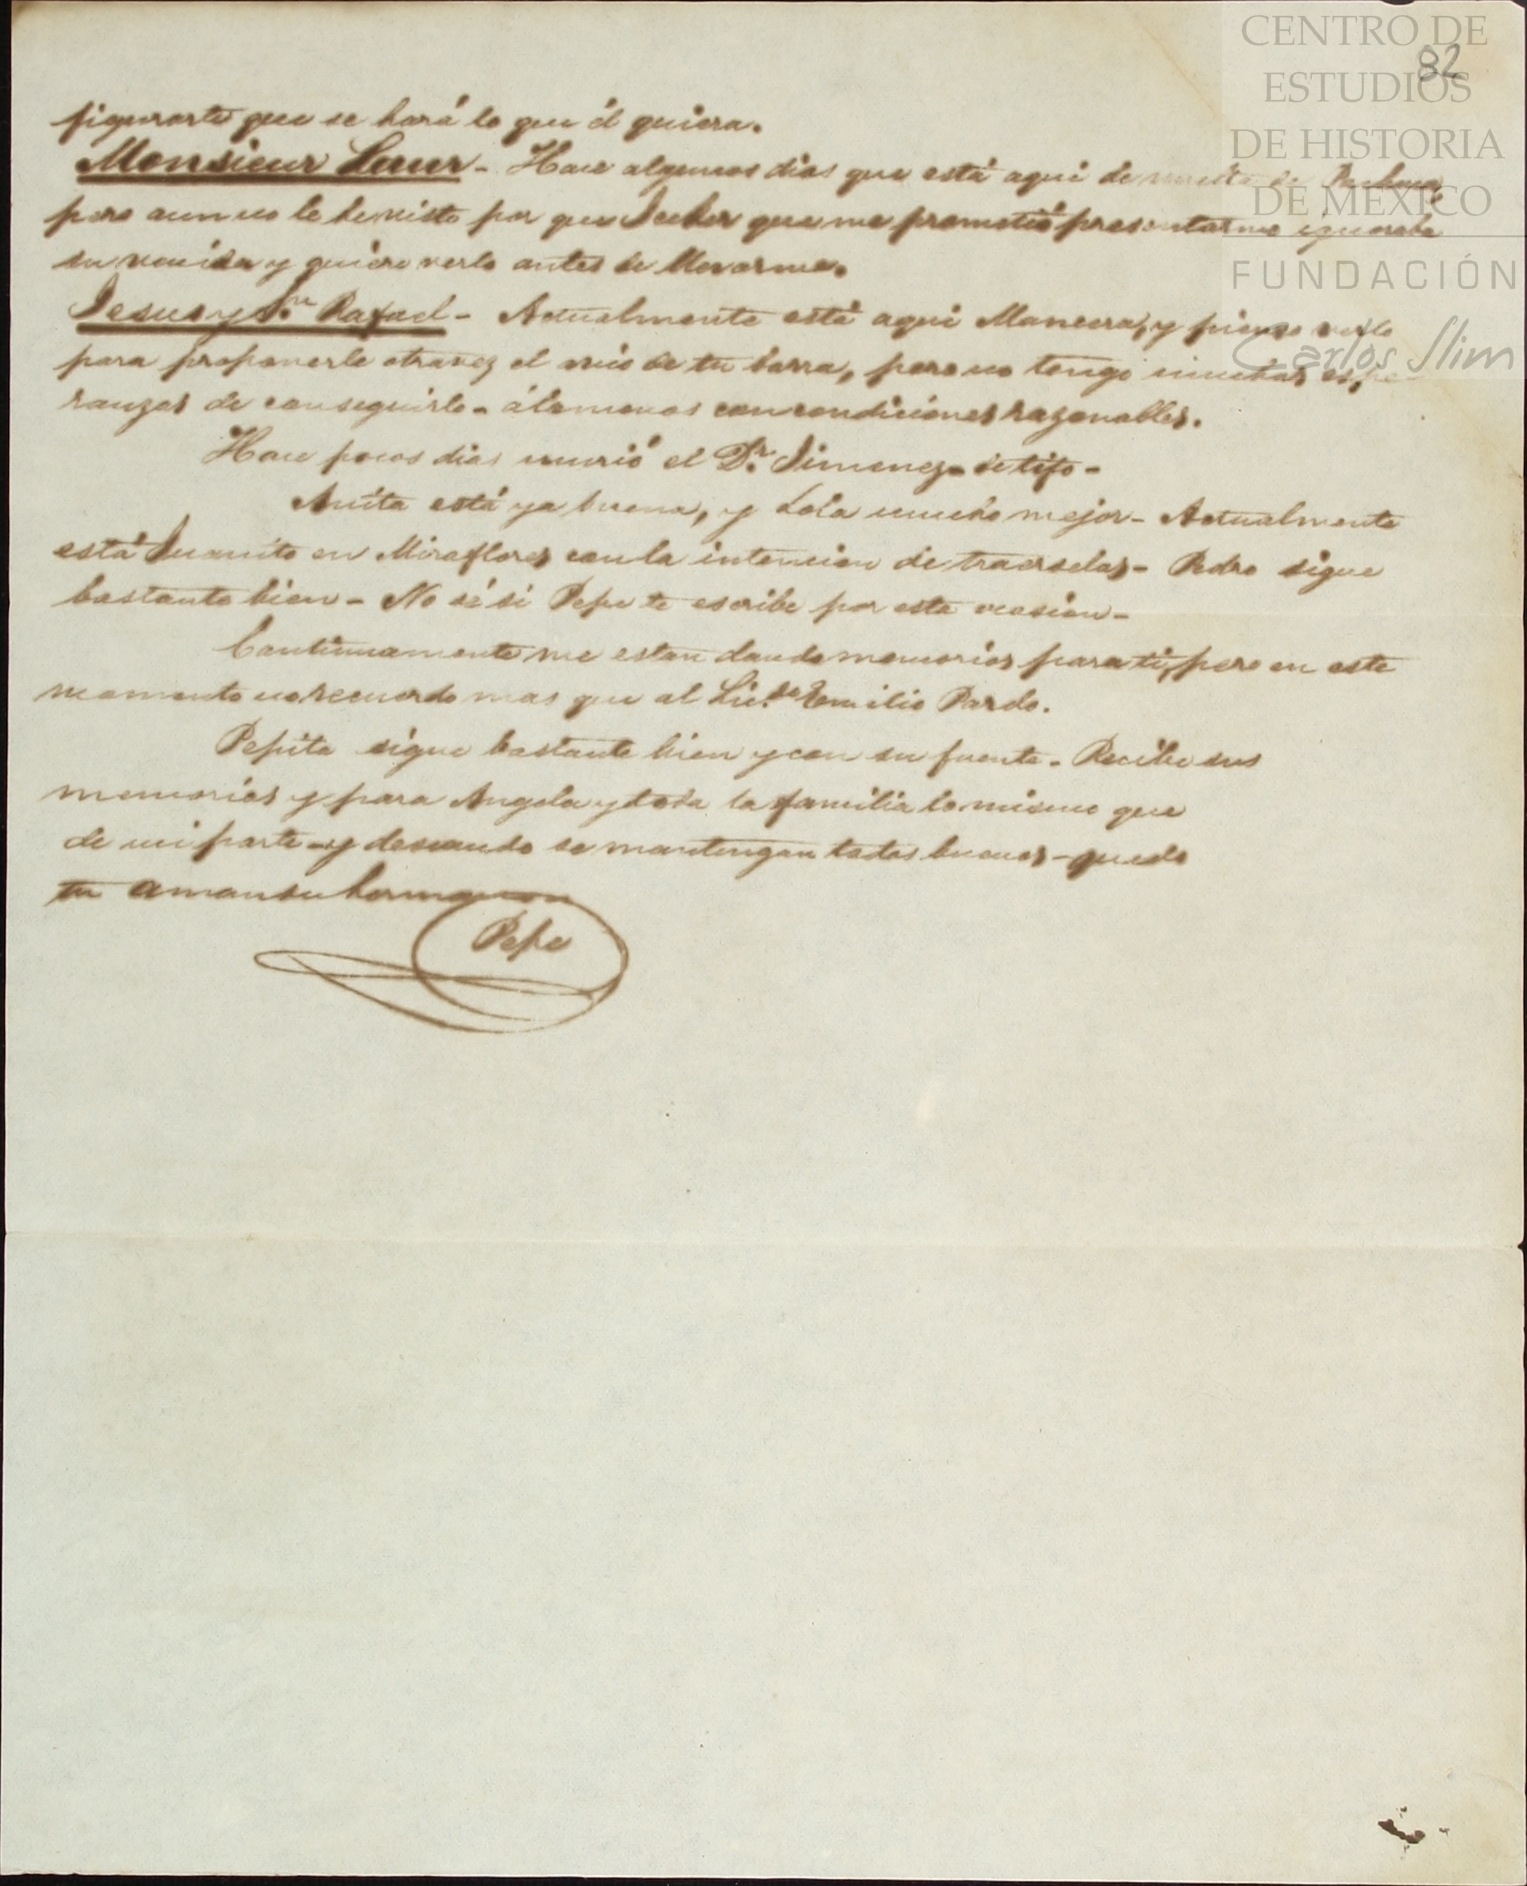 CENTRO DE
ESTUDIOS
DE HISTORIA
DE MEXICO
FUNDACIÓN
Carlos Slim
82
figurarte que se hará lo que él quiera.
Monsieur Laur - Hace algunos dias que está aqui de vuelta de Pachuca,
pero aun no le he visto por que Jecker que me prometió presentarme ignoraba
su venida y quiere verlo antes de llevarme.
Jesus y Sn. Rafael - Actualmente está aqui Mancera, y pienso verlo
para proponerle otra vez el avio de tu barra, pero no tengo muchas espe
ranzas de conseguirlo - álomenos con condiciones razonables.
Hace pocos dias murió el Dr. Jimenez de tifo -
Anita está ya buena, y Lola mucho mejor - Actualmente
está Juanito en Miraflores con la intencion de traerselas - Pedro sigue
bastante bien - No sé si Pepe te escribe por esta ocasion -
Continuamente me estan dando memorias para ti, pero en este
momento no recuerdo mas que al Licdo. Emilio Pardo.
Pepita sigue bastante bien y con su fuente - Recibe sus
memorias y para Angela y toda la familia lo mismo que
de mi parte - y deseando se mantengan todos buenos - quedo
tu amante hermano
Pepe